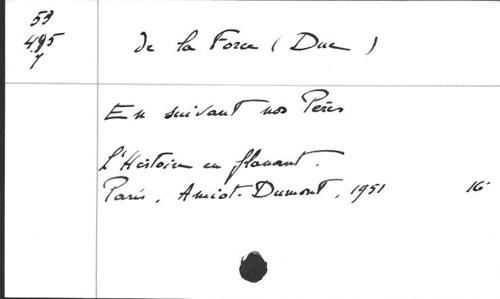 53
495
7
de la Force (Duc)
En suivant nos Pères
L'Histoire en flanant.
Paris, Amiot-Dumont, 1951 16°